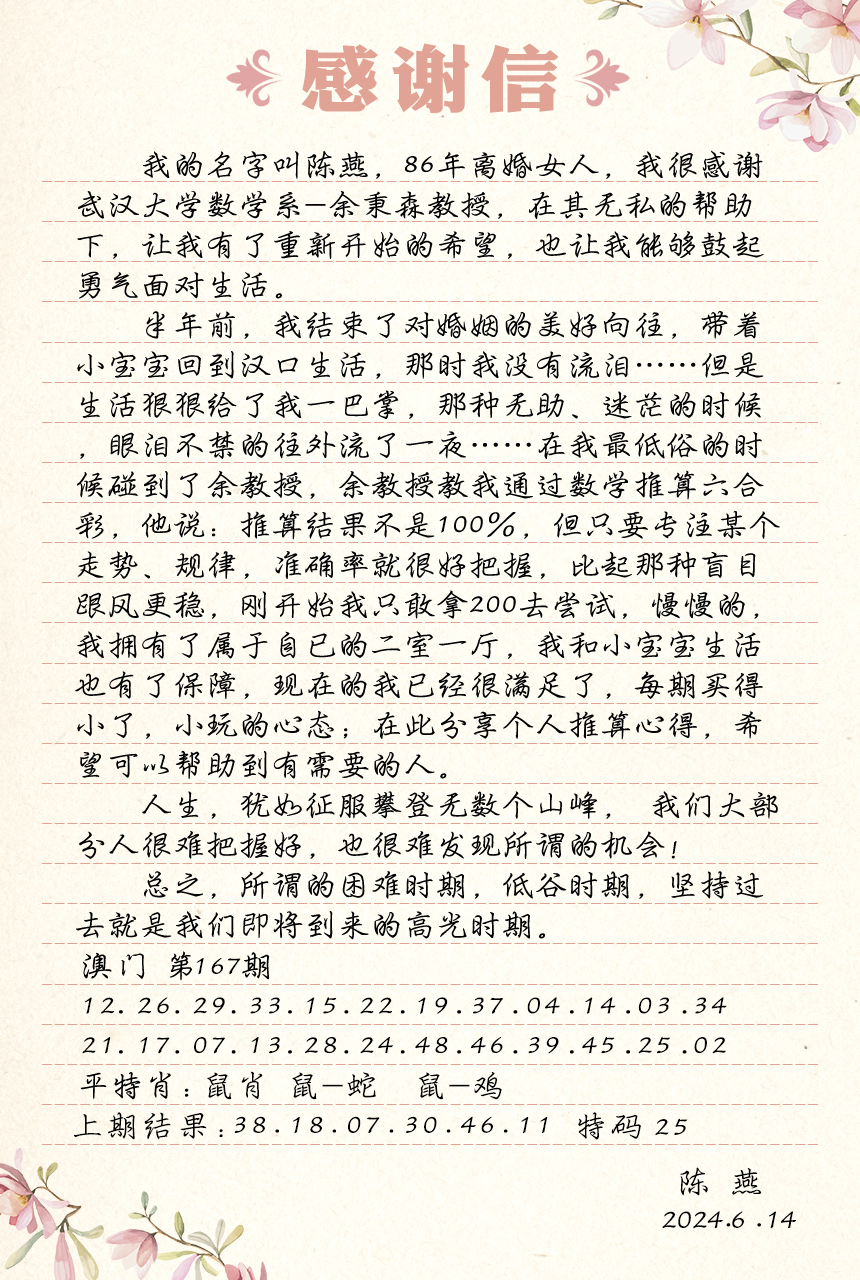 感谢信
我的名字叫陈燕，86年离婚女人，我很感谢
武汉大学数学系—余秉森教授，在其无私的帮助
下，让我有了重新开始的希望，也让我能够鼓起
勇气面对生活。
半年前，我结束了对婚姻的美好向往，带着
小宝宝回到汉口生活，那时我没有流泪……但是
生活狠狠给了我一巴掌，那种无助、迷茫的时候
，眼泪不禁的往外流了一夜……在我最低俗的时
候碰到了余教授，余教授教我通过数学推算六合
彩，他说：推算结果不是100%，但只要专注某个
走势、规律，准确率就很好把握，比起那种盲目
跟风更稳，刚开始我只敢拿200去尝试，慢慢的，
我拥有了属于自已的二室一厅，我和小宝宝生活
也有了保障，现在的我已经很满足了，每期买得
小了，小玩的心态；在此分享个人推算心得，希
望可以帮助到有需要的人。
人生，犹如征服攀登无数个山峰， 我们大部
分人很难把握好，也很难发现所谓的机会！
总之，所谓的困难时期，低谷时期，坚持过
去就是我们即将到来的高光时期。
澳门 第167期
12.26.29.33.15.22.19.37.04.14.03.34
21.17.07.13.28.24.48.46.39.45.25.02
平特肖：鼠肖 鼠—蛇 鼠—鸡
上期结果：38.18.07.30.46.11 特码 25
陈 燕
2024.6.14